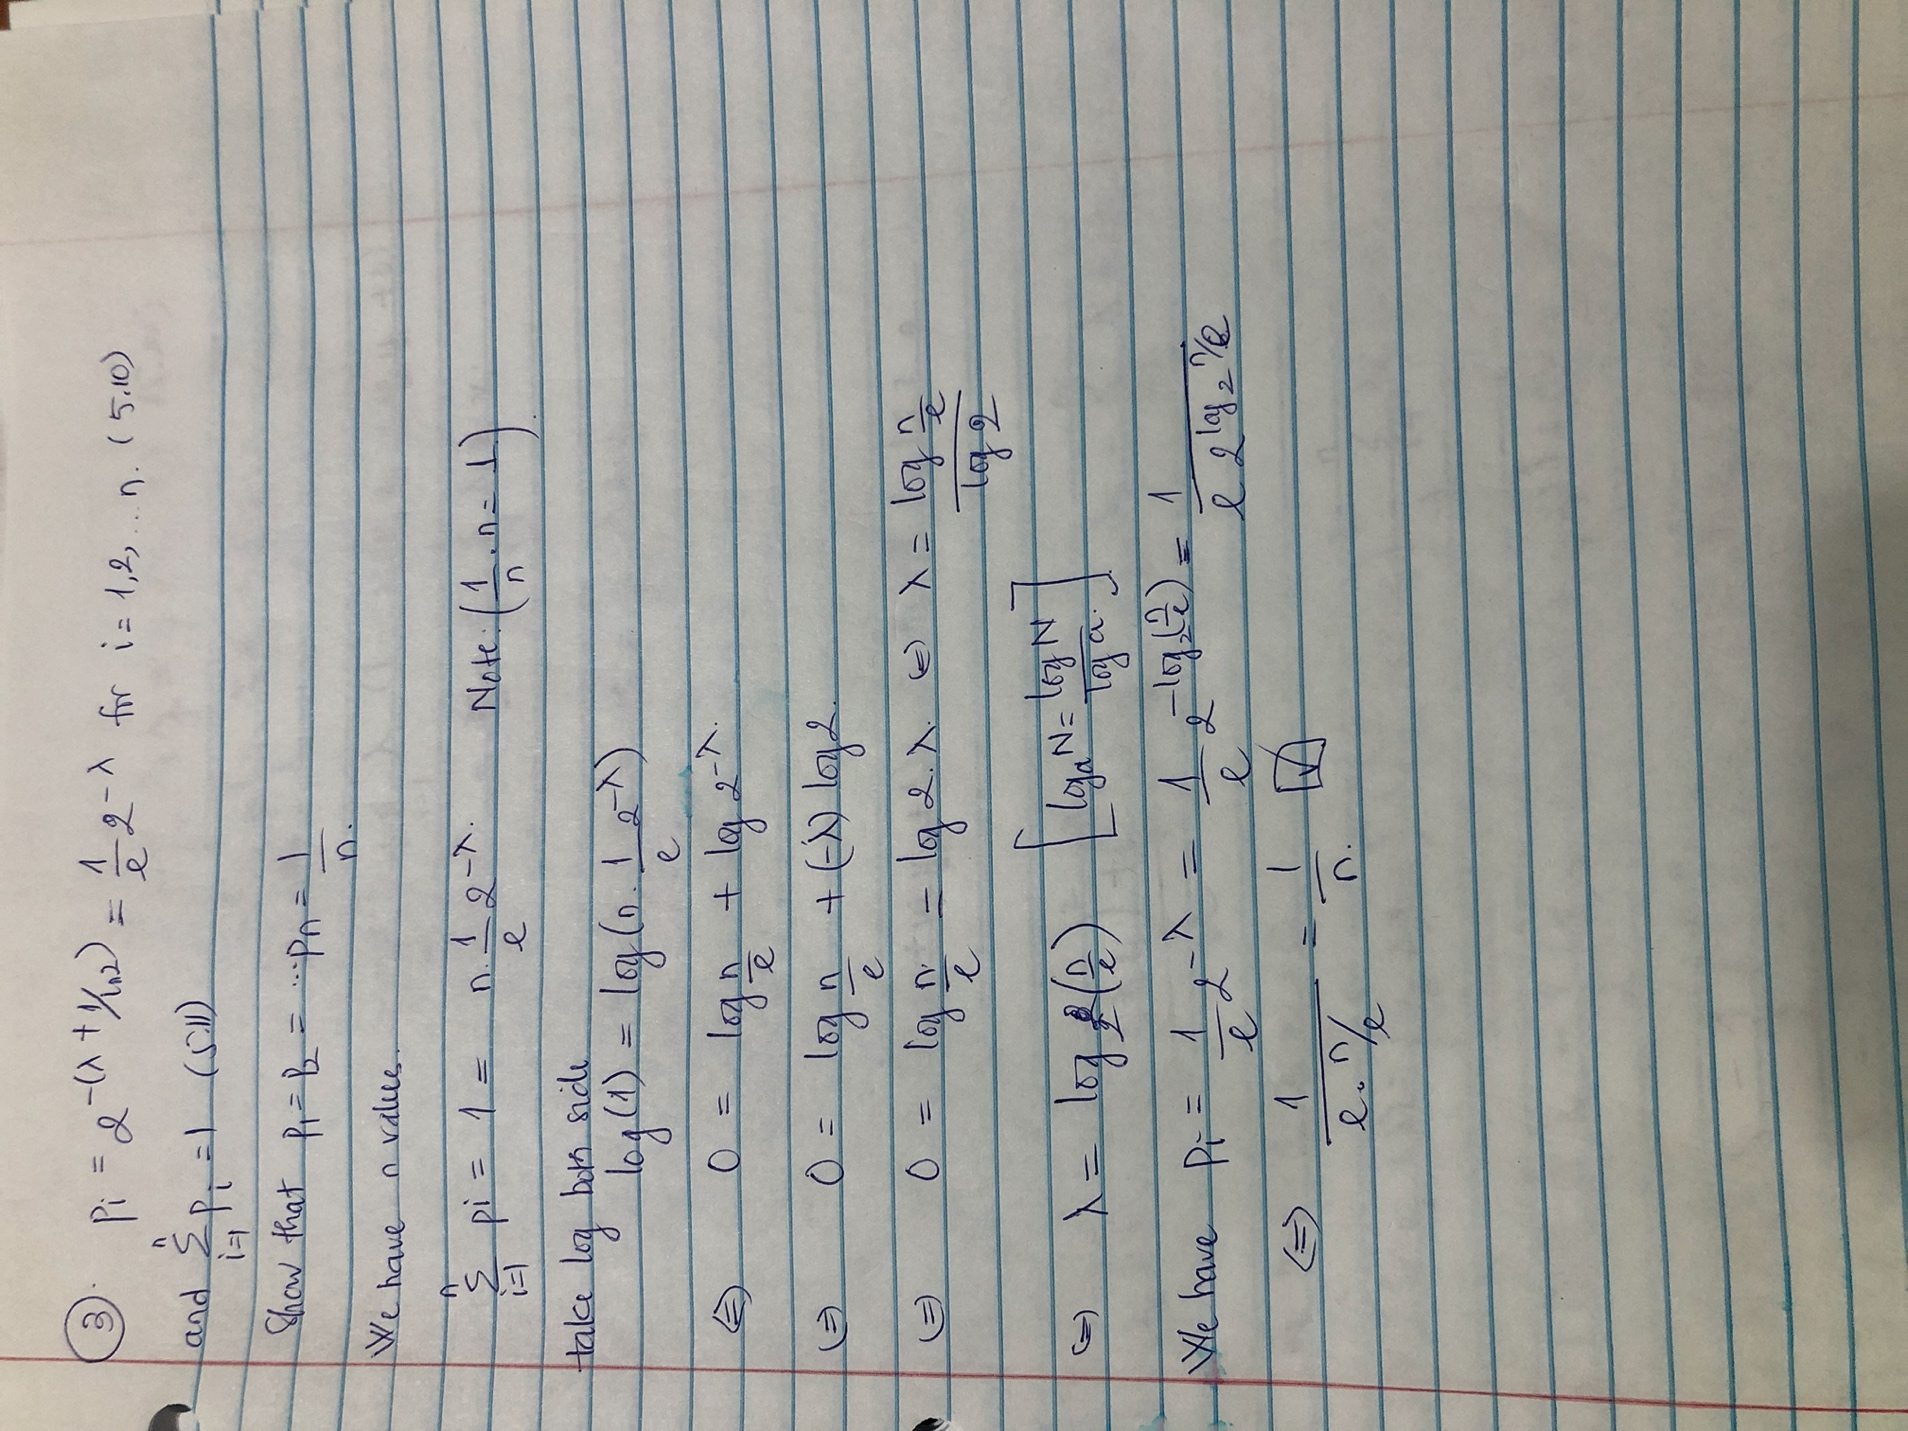 ③. Pi = 2^-(λ + 1/ln2) = 1/e 2^-λ for i = 1,2,...n. (5.10)
and n∑i=1 Pi = 1 (5.11)
Show that P1 = P2 = ...Pn = 1/n.
We have n values.
n∑i=1 pi = 1 = n. 1/e 2^-λ. Note: (1/n . n = 1).
take log both side
log(1) = log(n. 1/e 2^-λ)
(=) 0 = log n/e + log 2^-λ.
(=) 0 = log n/e + (-λ) log 2.
(=) 0 = log n/e = log 2.λ. (=) λ = log n/e / log 2
(=) λ = log2(n/e) [loga N = log N / log a.]
We have Pi = 1/e 2^-λ = 1/e 2^-log2(n/e) = 1 / e 2^log2 n/e
(=) 1 / e. n/e = 1/n. ☑